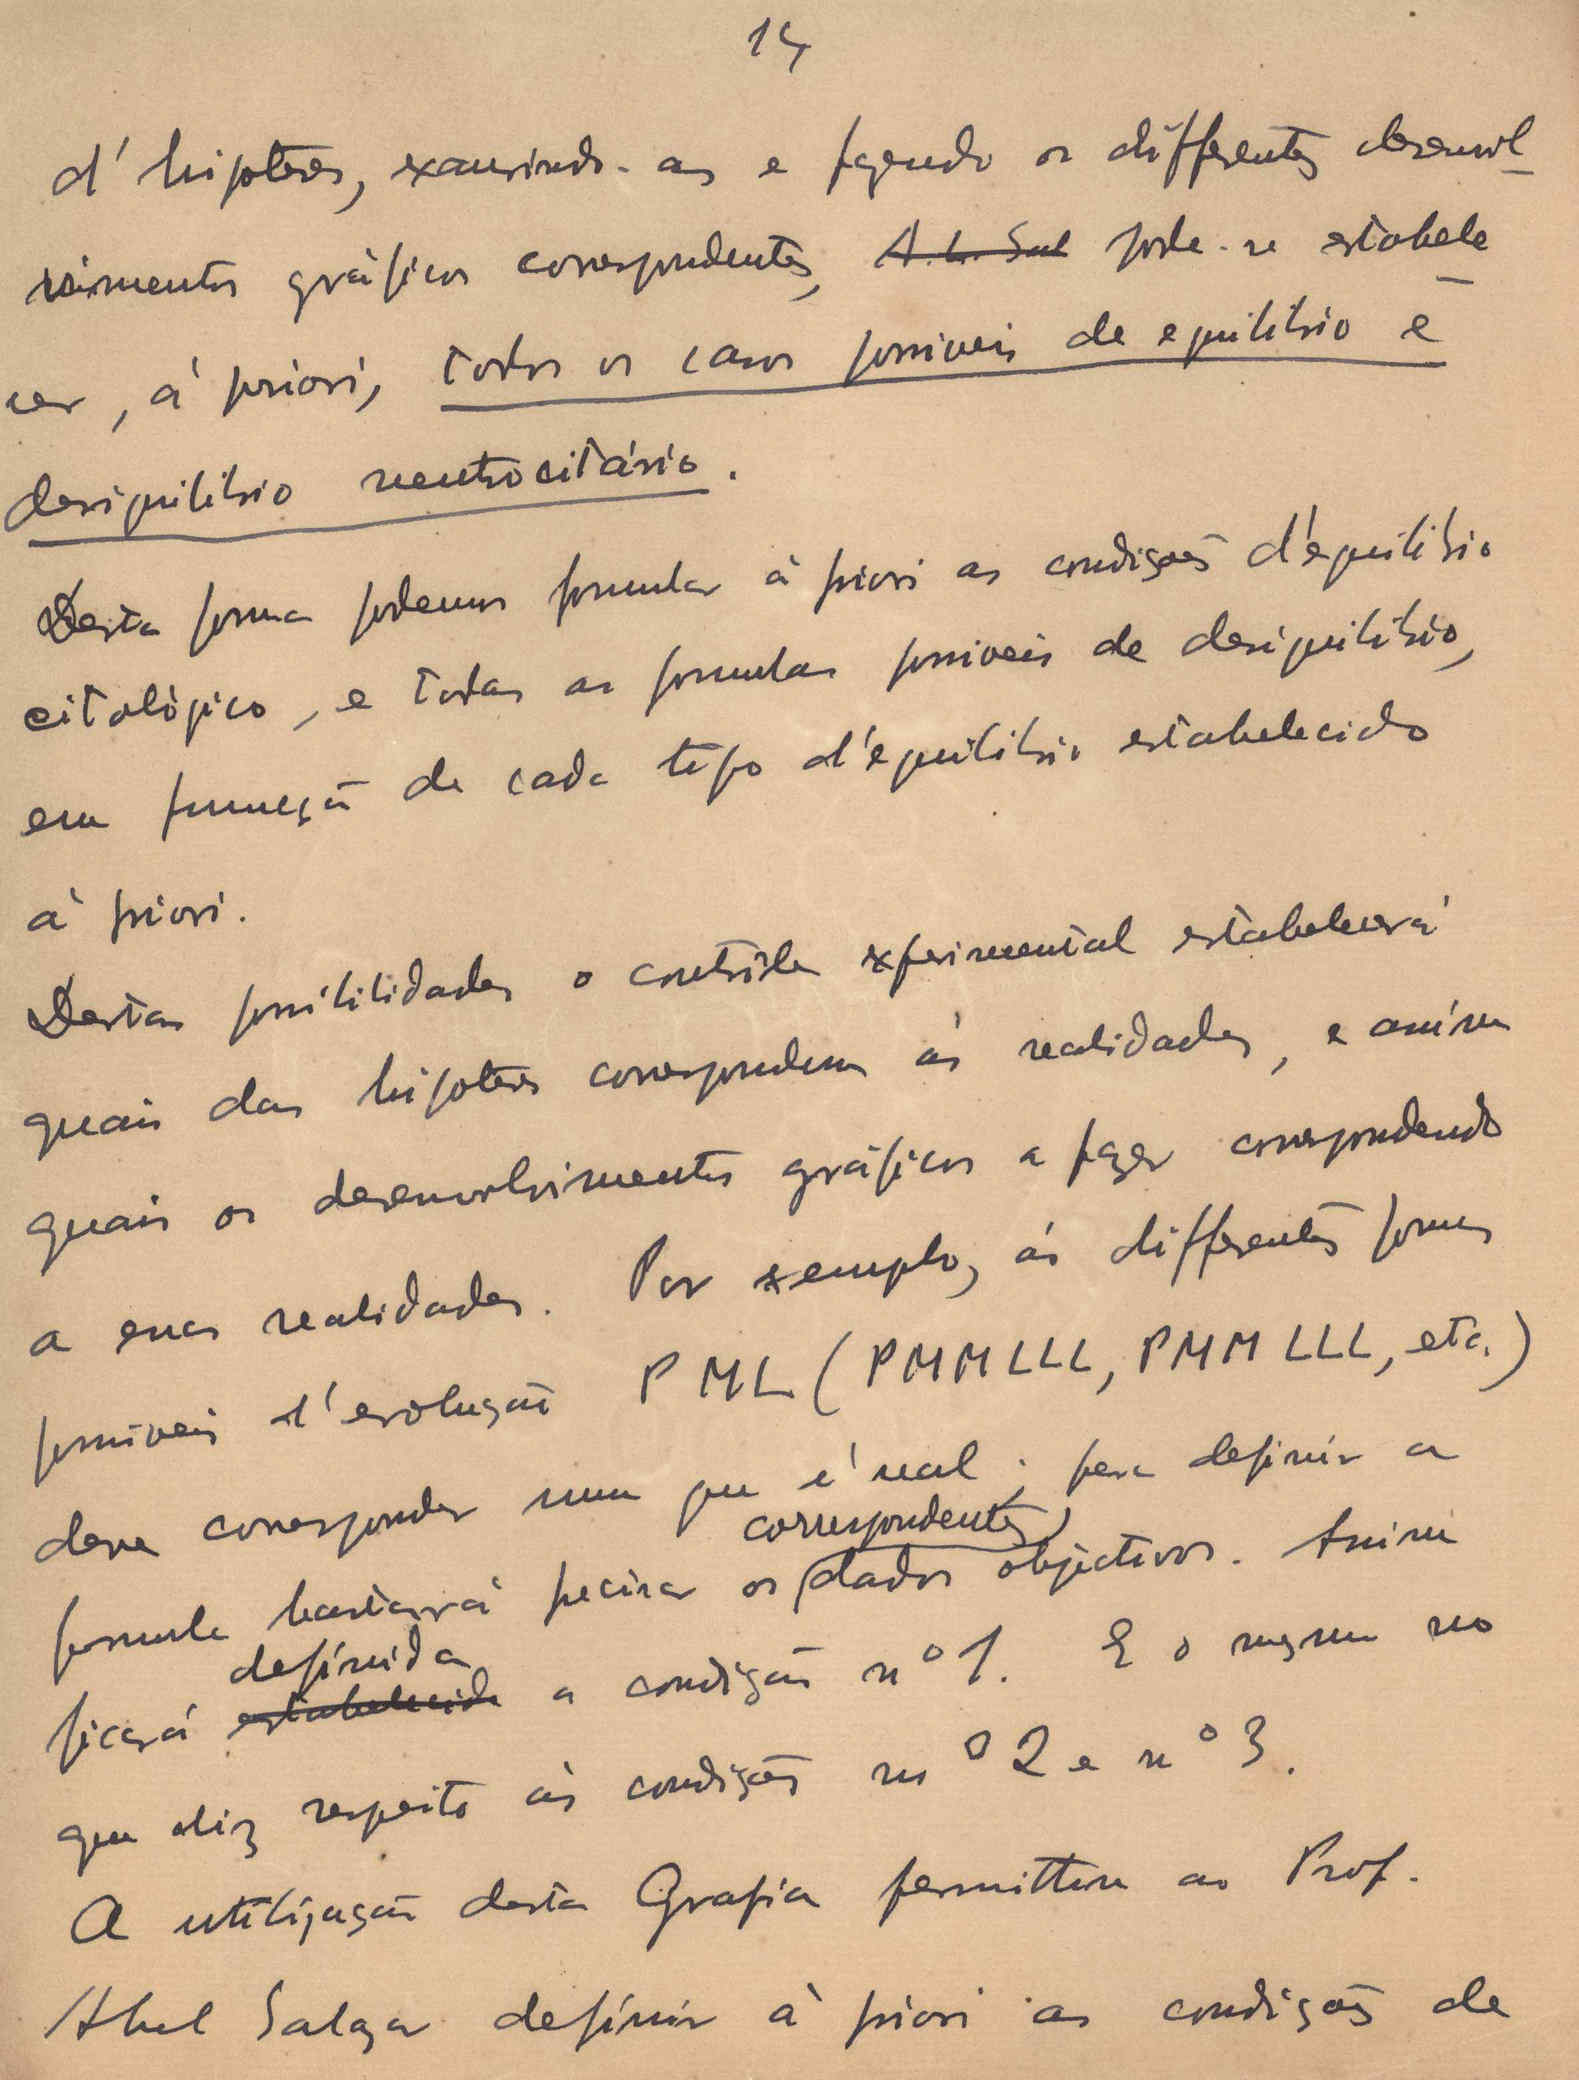 14
d'hipoteses, exaurindo-as e fazendo os differentes desenvol-
vimentos gráficos correspondentes, A. L. Sal pode-se estabele-
cer, à priori, todos os casos possiveis de equilibrio e
desiquilibrio neutrocitário.
Desta forma podemos formular à priori as condições d'equilibrio
citológico, e todas as formulas possiveis de desiquilibrio,
em funcção de cada tipo d'equilibrio estabelecido
à priori.
Destas possibilidades o contrôle experimental estabelecerá
quais das hipoteses correspondem ás realidades, e assim
quais os desenvolvimentos gráficos a fazer correspondendo
a essas realidades. Por exemplo, ás differentes formas
possiveis d'evolução PML (PMMLLL, PMMLLL, etc.)
deve corresponder uma que é real; para definir a
correspondentes
formula bastará precisar os dados objectivos. Assim
definida
ficará estabelecida a condição nº 1. E o mesmo no
que diz respeito ás condições nº 2 e nº 3.
A utilização desta Grafia permittiu ao Prof.
Abel Salazar definir à priori as condições de